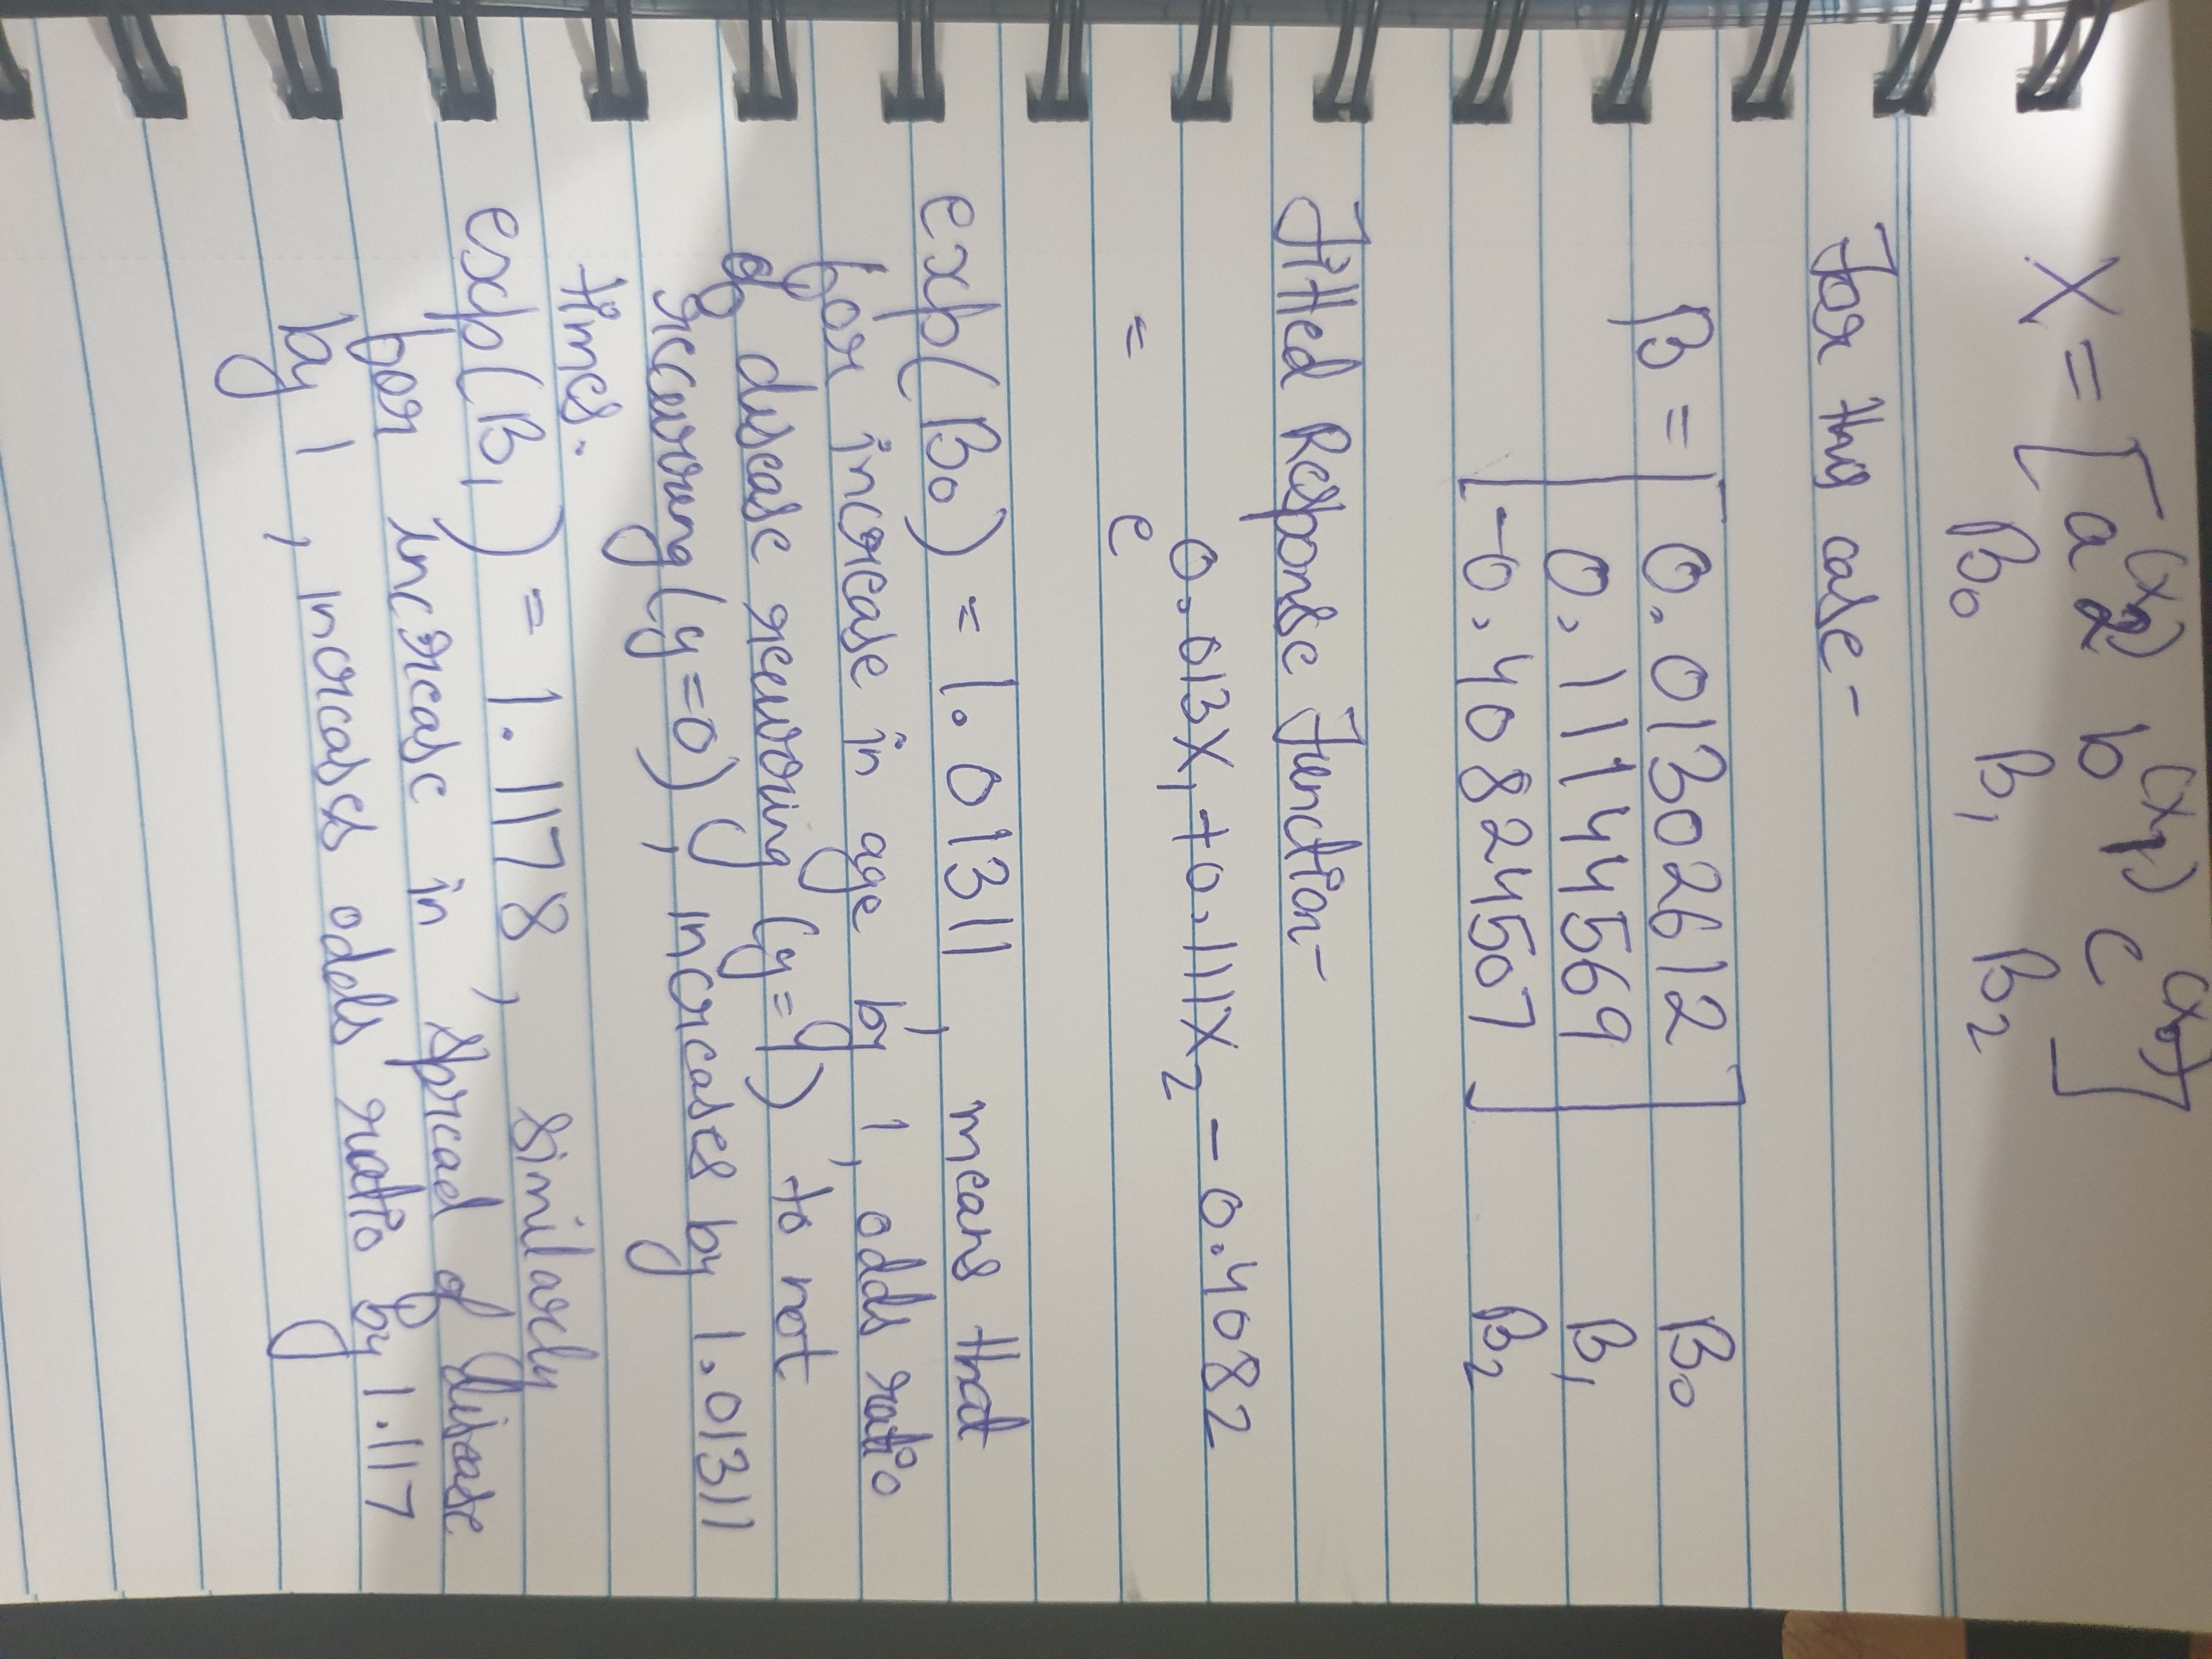 X = [a(x2) b(x1) c(x0)]
β0 β1 β2
For this case-
β = [0.01302612 β0
0.11144569 β1
-0.40824507] β2
Fitted Response Function-
= e^0.013X1+0.111X2-0.4082
exp(β0) = 1.01311, means that
for increase in age by 1, odds ratio
of disease recurring (y=1) to not
recurring (y=0), increases by 1.01311
times.
exp(β1) = 1.1178, similarly
for increase in spread of disease
by 1, increases odds ratio by 1.117